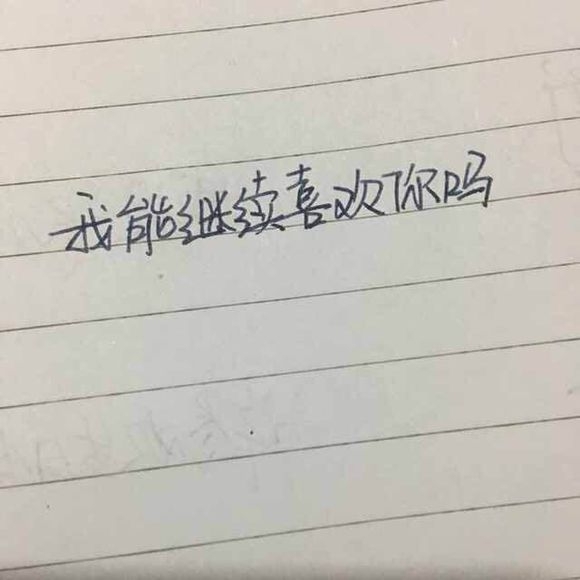 我能继续喜欢你吗